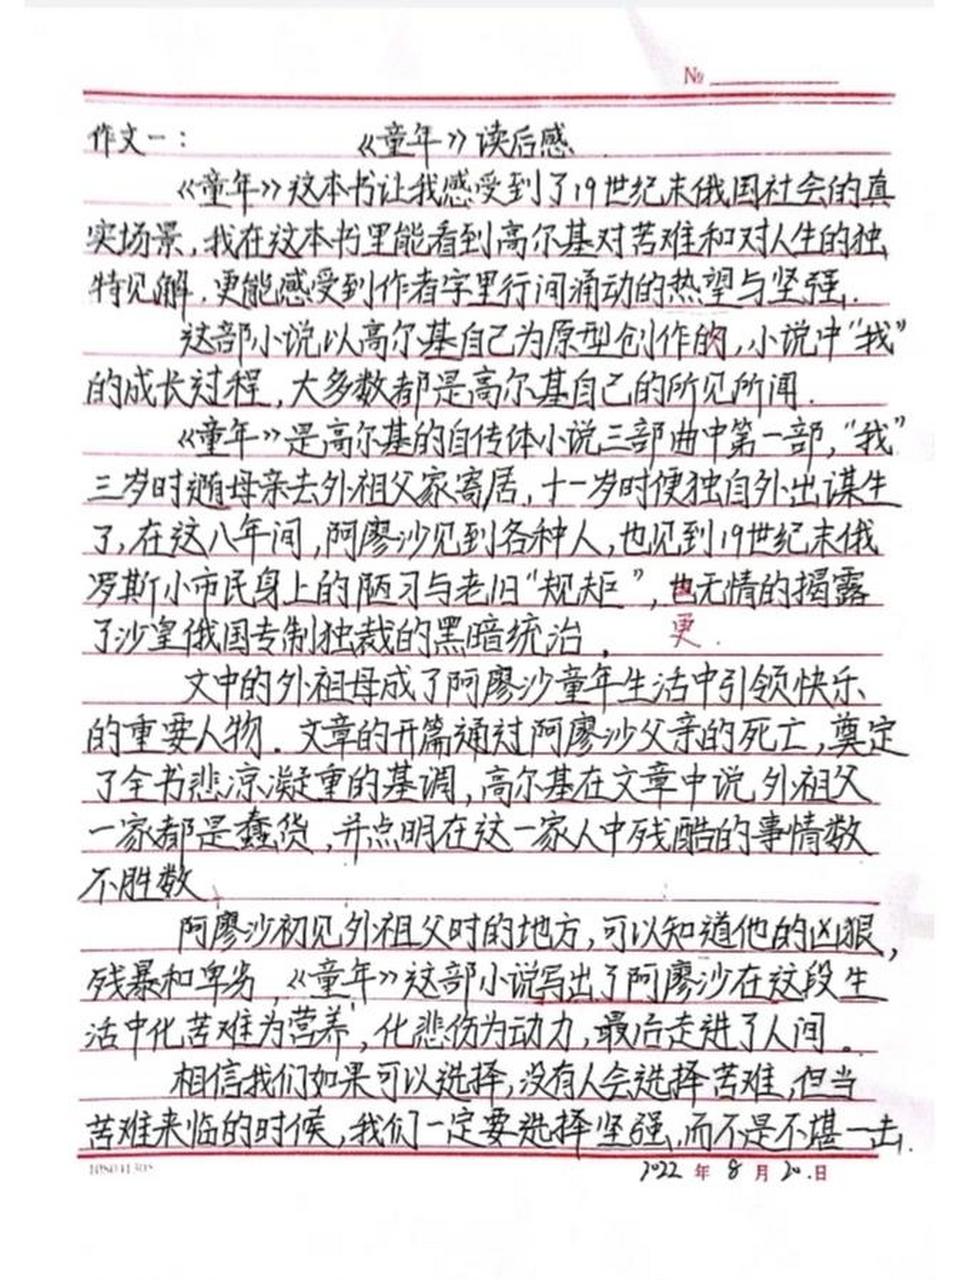 №
作文一：　《童年》读后感
《童年》这本书让我感受到了19世纪末俄国社会的真
实场景，我在这本书里能看到高尔基对苦难和对人生的独
特见解，更能感受到作者字里行间涌动的热望与坚强.
这部小说以高尔基自己为原型创作的，小说中“我”
的成长过程，大多数都是高尔基自己的所见所闻.
《童年》是高尔基的自传体小说三部曲中第一部，“我”
三岁时随母亲去外祖父家寄居，十一岁时便独自外出谋生
了，在这八年间，阿廖沙见到各种人，也见到19世纪末俄
罗斯小市民身上的陋习与老旧“规矩”，也无情的揭露
更.
了沙皇俄国专制独裁的黑暗统治.
文中的外祖母成了阿廖沙童年生活中引领快乐
的重要人物.文章的开篇通过阿廖沙父亲的死亡，奠定
了全书悲凉凝重的基调，高尔基在文章中说外祖父
一家都是蠢货，并点明在这一家人中残酷的事情数
不胜数
阿廖沙初见外祖父时的地方，可以知道他的凶狠，
残暴和卑劣，《童年》这部小说写出了阿廖沙在这段生
活中化苦难为营养，化悲伤为动力，最后走进了人间。
相信我们如果可以选择，没有人会选择苦难，但当
苦难来临的时候，我们一定要选择坚强，而不是不堪一击.
2022年8月20.日